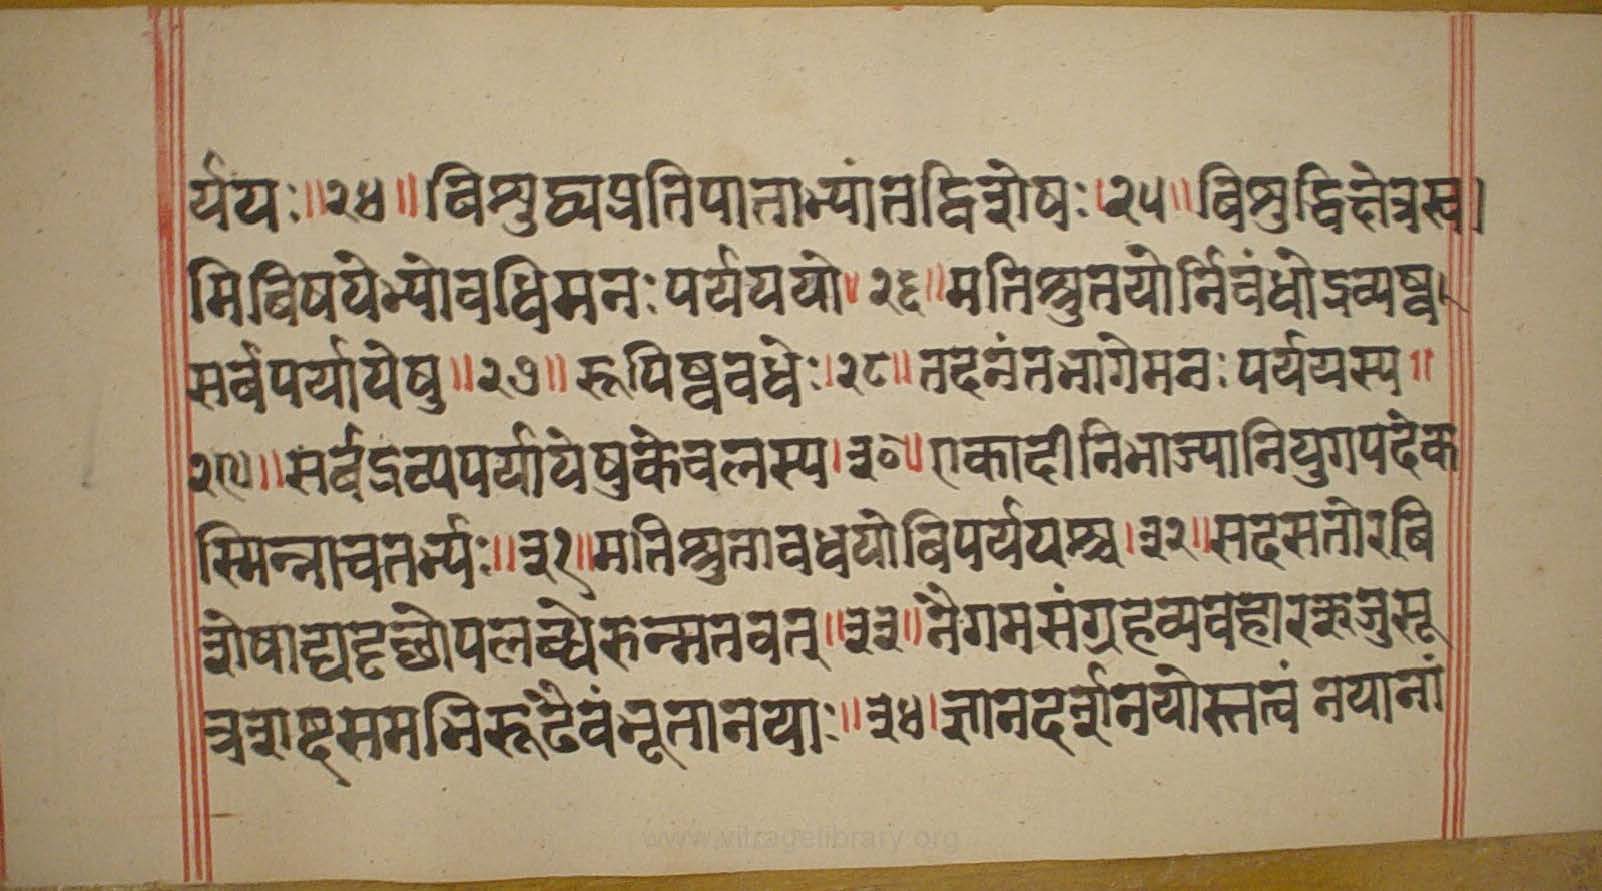 र्ययः॥२४॥विशुद्ध्यप्रतिपाताभ्यांतद्विशेषः।२५॥विशुद्धिक्षेत्रस्वा
मिविषयेभ्योवधिमनःपर्यययो॥२६॥मतिश्रुतयोर्निबंधोद्रव्यष्व
सर्वपर्यायेषु॥२७॥रूपिष्ववधेः।२८॥तदनंतभागेमनःपर्ययस्य॥
२९॥सर्वद्रव्यपर्यायेषुकेवलस्य।३०॥एकादीनिभाज्यानियुगपदेक
स्मिन्नाचतर्भ्यः॥३१॥मतिश्रुतावधयोविपर्ययश्च।३२॥सदसतोरवि
शेषाद्यदृछोपलब्धेरुन्मतवत्॥३३॥नैगमसंग्रहव्यवहारऋजुसू
त्रशब्दसमभिरूढैवंभूतानयाः॥३४।ज्ञानदर्शनयोस्तत्वं नयानां
www.vitragelibrary.org